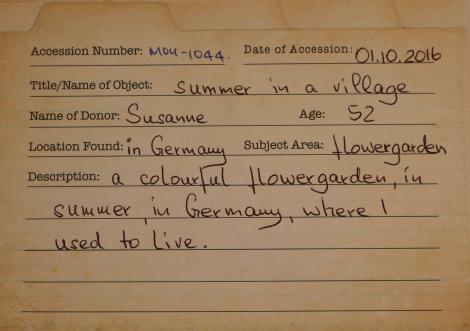 Accession Number: MOU-1044. Date of Accession: 01.10.2016
Title/Name of Object: Summer in a village
Name of Donor: Susanne Age: 52
Location Found: in Germany Subject Area: flowergarden
Description: a colourful flowergarden, in
summer, in Germany, where I
used to live.